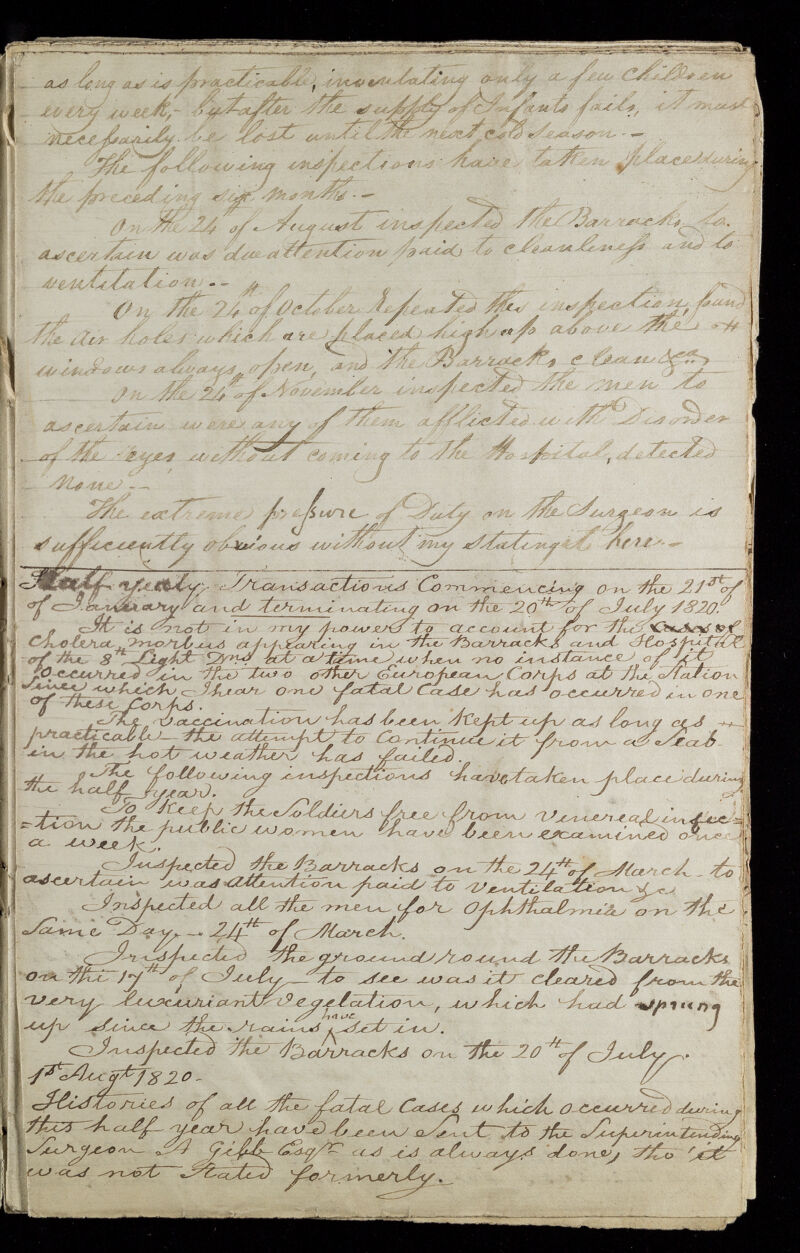 as long as is practicable, inoculating only a few Children
every week,- but after the supply of Infants fails, it must
necessarily be lost until the next cold season.-
The following inspections have taken place during
the preceding six months.-
On the 24th of August inspected the Barracks to
ascertain was due attention paid to cleanliness and to
ventilation.--
On the 24th of October Repeated this inspection, found
the air holes which are placed high up above the
windows always open, and the Barracks clean &ca
On the 24th of November inspected the men to
ascertain were any of them afflicted with Disorder
of the eyes without coming to the Hospital, detected
None.--
The extreme pressure of Duty on the Surgeon is
sufficiently obvious without my stating it here.-
Half yealy Transactions Commencing on the 21st of
of January and terminating on the 20th of July 1820.
It is not in my power to account for the Cases of
Cholera morbus appearing in the Barracks and Hospital
of the 8th Light Dns at a time when no instance of it
occurred in the two other European Corps at the Station
Since which I hear one fatal Case has occurred in one
of these Corps.
The vaccination has been Kept up as long as
practicable - the attempt to Continue it from a Scab
in the hot weather has failed.
The following inspections have taken place during
the half year.
To Keep the Soldiers free from venereal infec=
=tion the public women have been examined once
a week.
Inspected the Barracks on the 24th of March - to
ascertain was attention paid to Ventilation &c
Inspected all the men for Ophthalmia on the
Same Day - 24th of March.
Inspected the ground round the Barracks
on the 17th of July - to see was it cleared from the
very luxuriant Vegetation, which had sprung
up since the rains have set in.
Inspected the Barracks on the 20th of July.
1st Augt 1820-
Histories of all the fatal Cases which occurred during
this half year have been Sent to the Superintending
Surgeon A Gibb Esqr as is always done, tho' it
was not Stated formerly.